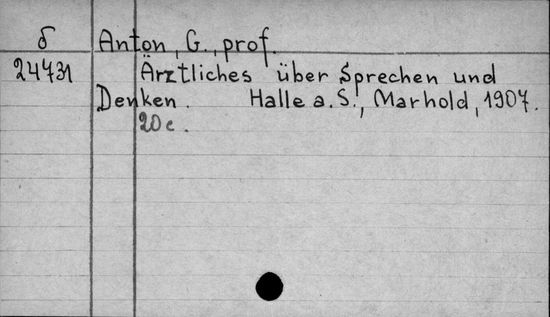 δ Anton, G., prof.
24731 Ärztliches über Sprechen und
Denken. Halle a. S., Marhold, 1907.
20 c.